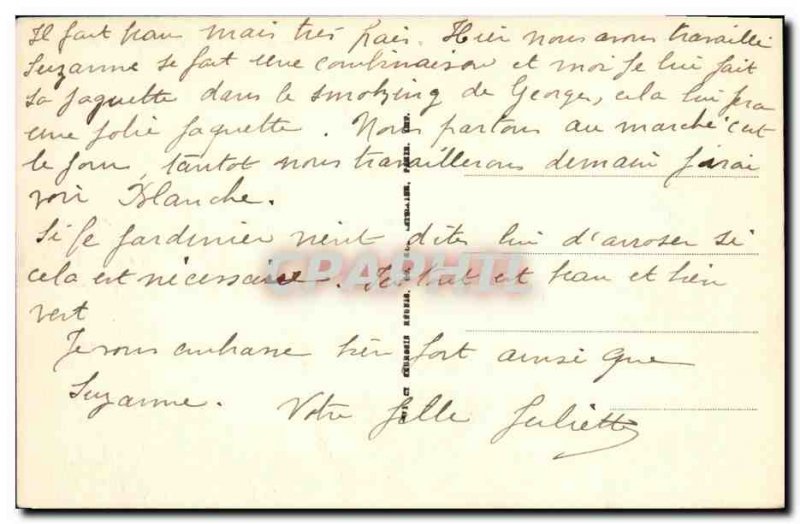 Il fait beau mais très frais. Hier nous avons travaillé
Suzanne se fait une combinaison et moi je lui fait
sa jaquette dans le smoking de Georges, cela lui fera
une jolie jaquette. Nous partons au marché c'est
le jour, tantot nous travaillerons demain j'irai
voir Blanche.
Si le jardinier vient dites lui d'arroser si
cela est nécessaire. est beau et bien
vert
Je vous embrasse bien fort ainsi que
Suzanne. Votre fille Juliette
CPAPHIL